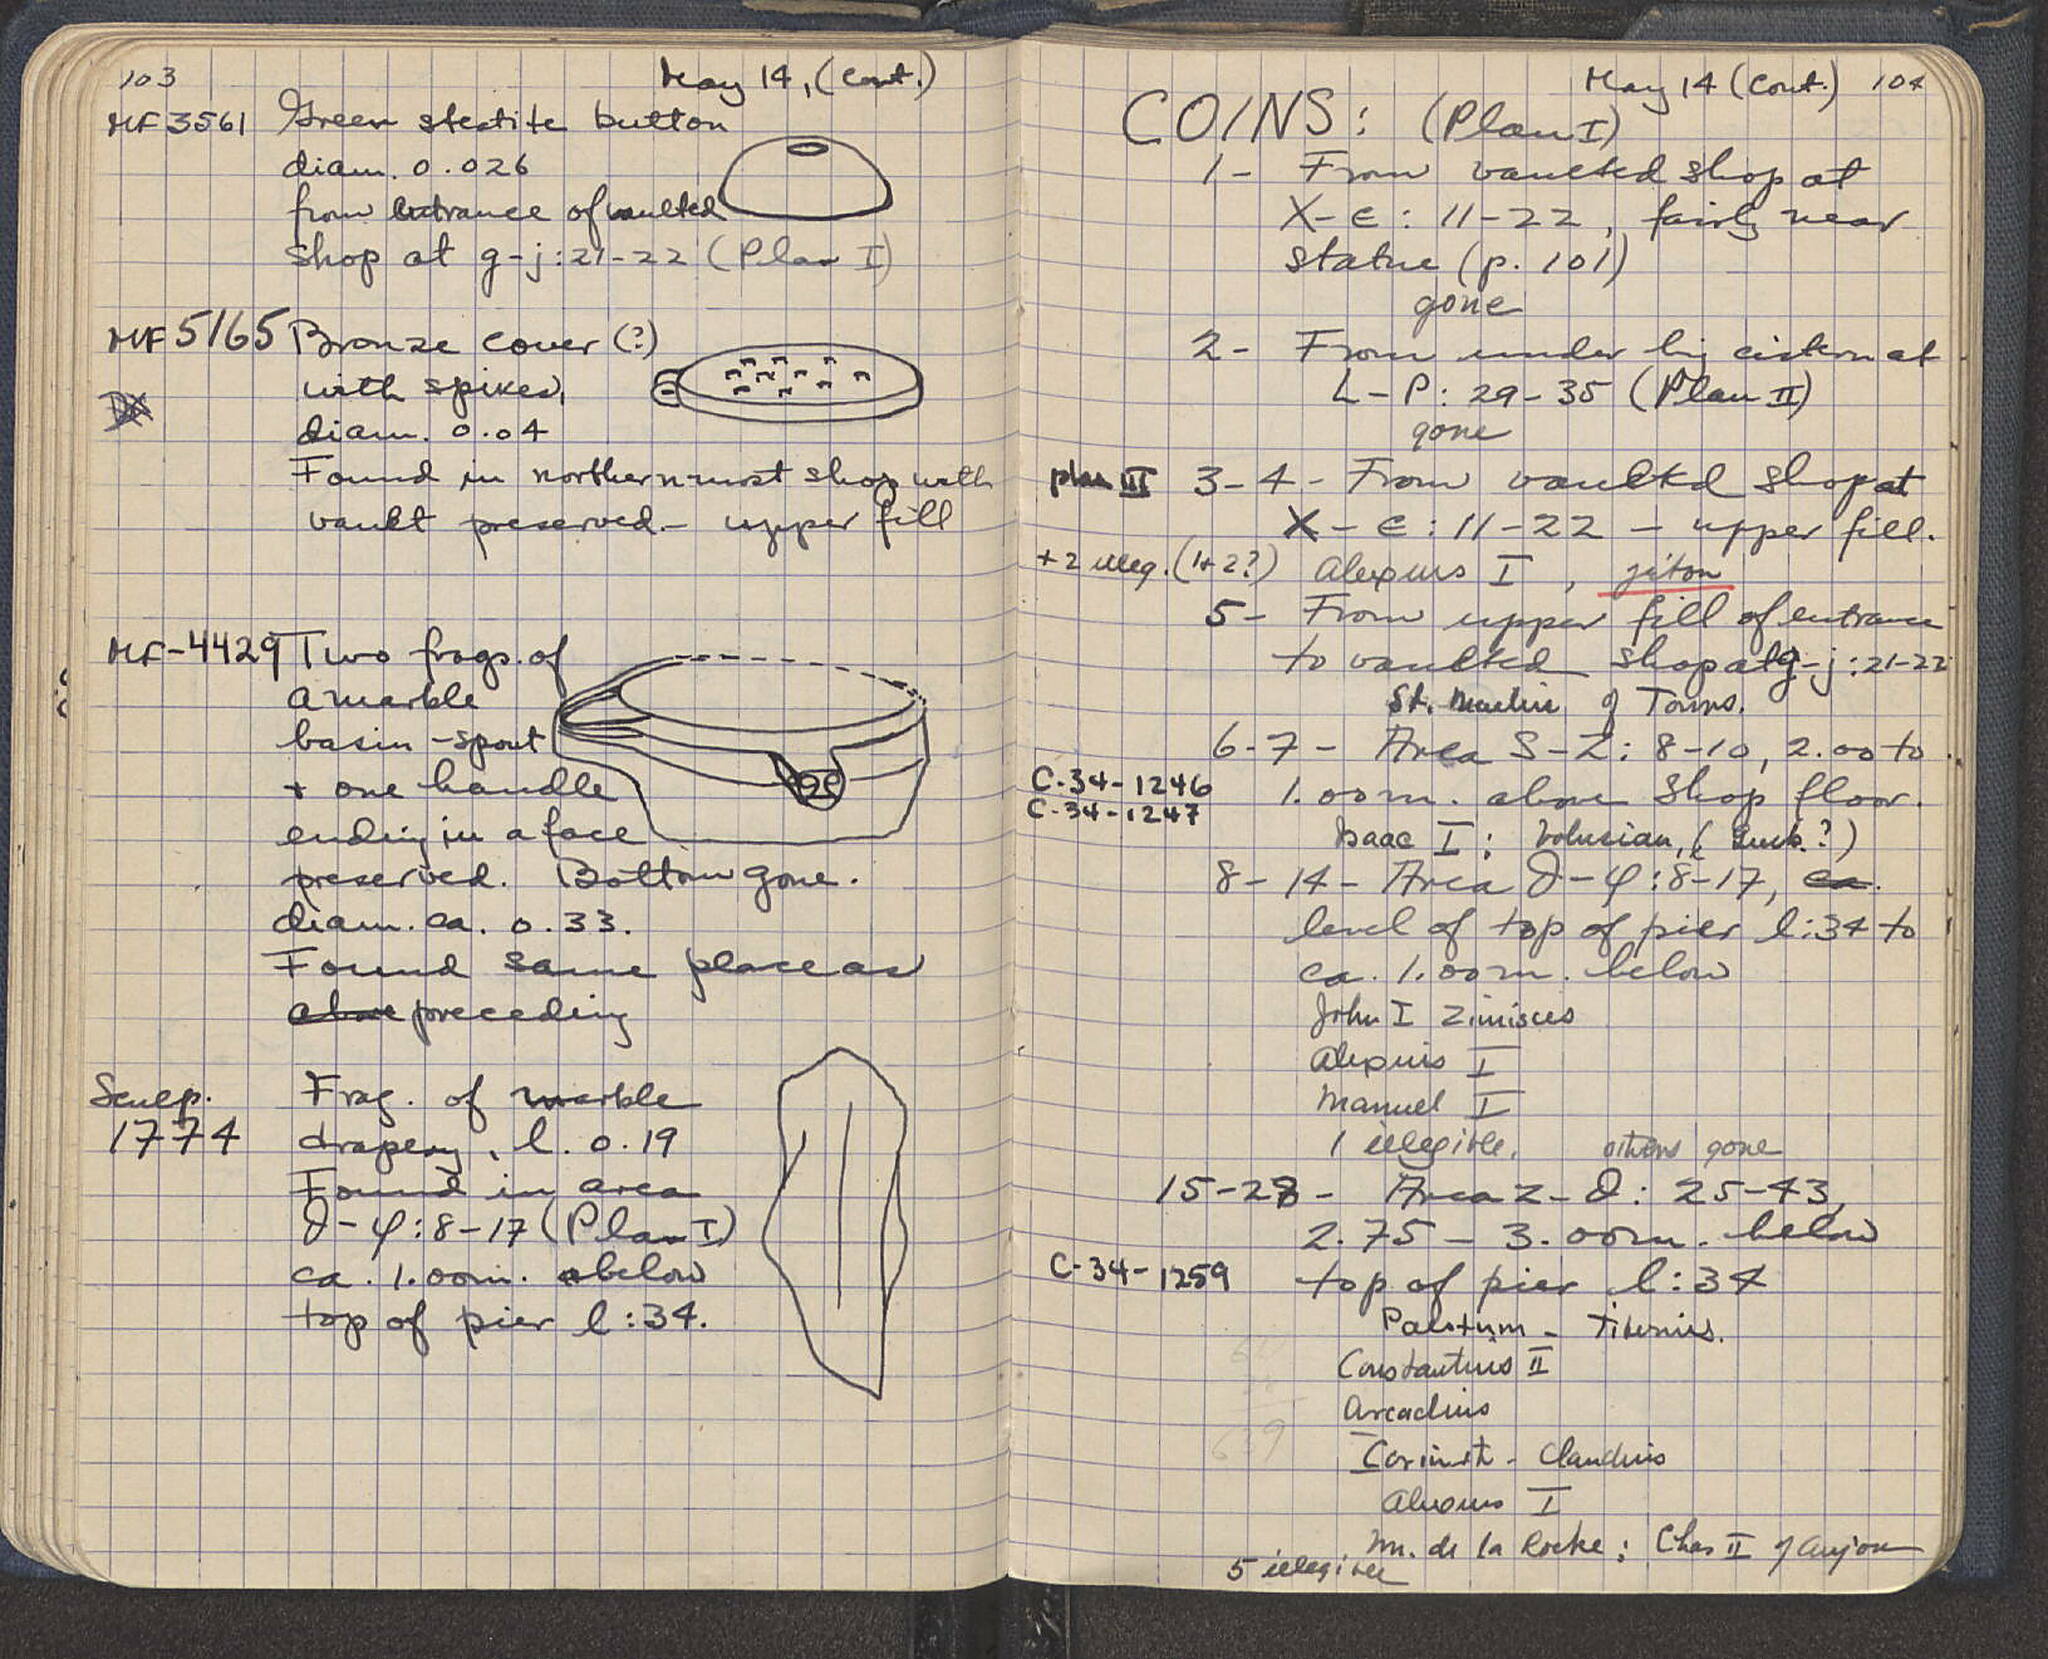 103 May 14, (Cont.)
MF 3561 Green steatite button
diam. 0.026
from entrance of vaulted
shop at g-j:21-22 (Plan I)
MF 5165 Bronze cover (?)
with spikes,
diam. 0.04
Found in northern-most shop with
vault preserved - upper fill
MF-4429 Two frags. of
a marble
basin - spout
+ one handle
ending in a face
preserved. Bottom gone.
diam. ca. 0.33.
Found same place as
above preceding
Sculp. Frag. of marble
1774 drapery, l. 0.19
Found in area
∂-φ:8-17 (Plan I)
ca. 1.00m. below
top of pier l:34.
May 14 (Cont.) 104
COINS: (Plan I)
1- From vaulted shop at
X-E: 11-22, fairly near
statue (p. 101)
gone
2- From under big cistern at
L-P: 29-35 (Plan II)
gone
plan III 3-4- From vaulted shop at
X-E: 11-22 - upper fill.
+2 illeg. (1+2?) Alexius I, jeton
5- From upper fill of entrance
to vaulted shop at g-j:21-22
St. Martin of Tours.
6-7- Area S-Z: 8-10, 2.00 to
C-34-1246 1.00m. above shop floor.
C-34-1247
Isaac I; Volusian,
8-14- Area ∂-φ:8-17, ca.
level of top of pier l:34 to
ca. 1.00m. below
John I Zimisces
Alexius I
Manuel I
1 illegible. others gone
15-28- Area Z-∂: 25-43,
2.75 - 3.00m. below
C-34-1259 top of pier l:34
Paestum - Tiberius.
Constantius II
Arcadius
Corinth - Claudius
Alexius I
Wm. de la Roche; Chas II of Anjou
5 illegible